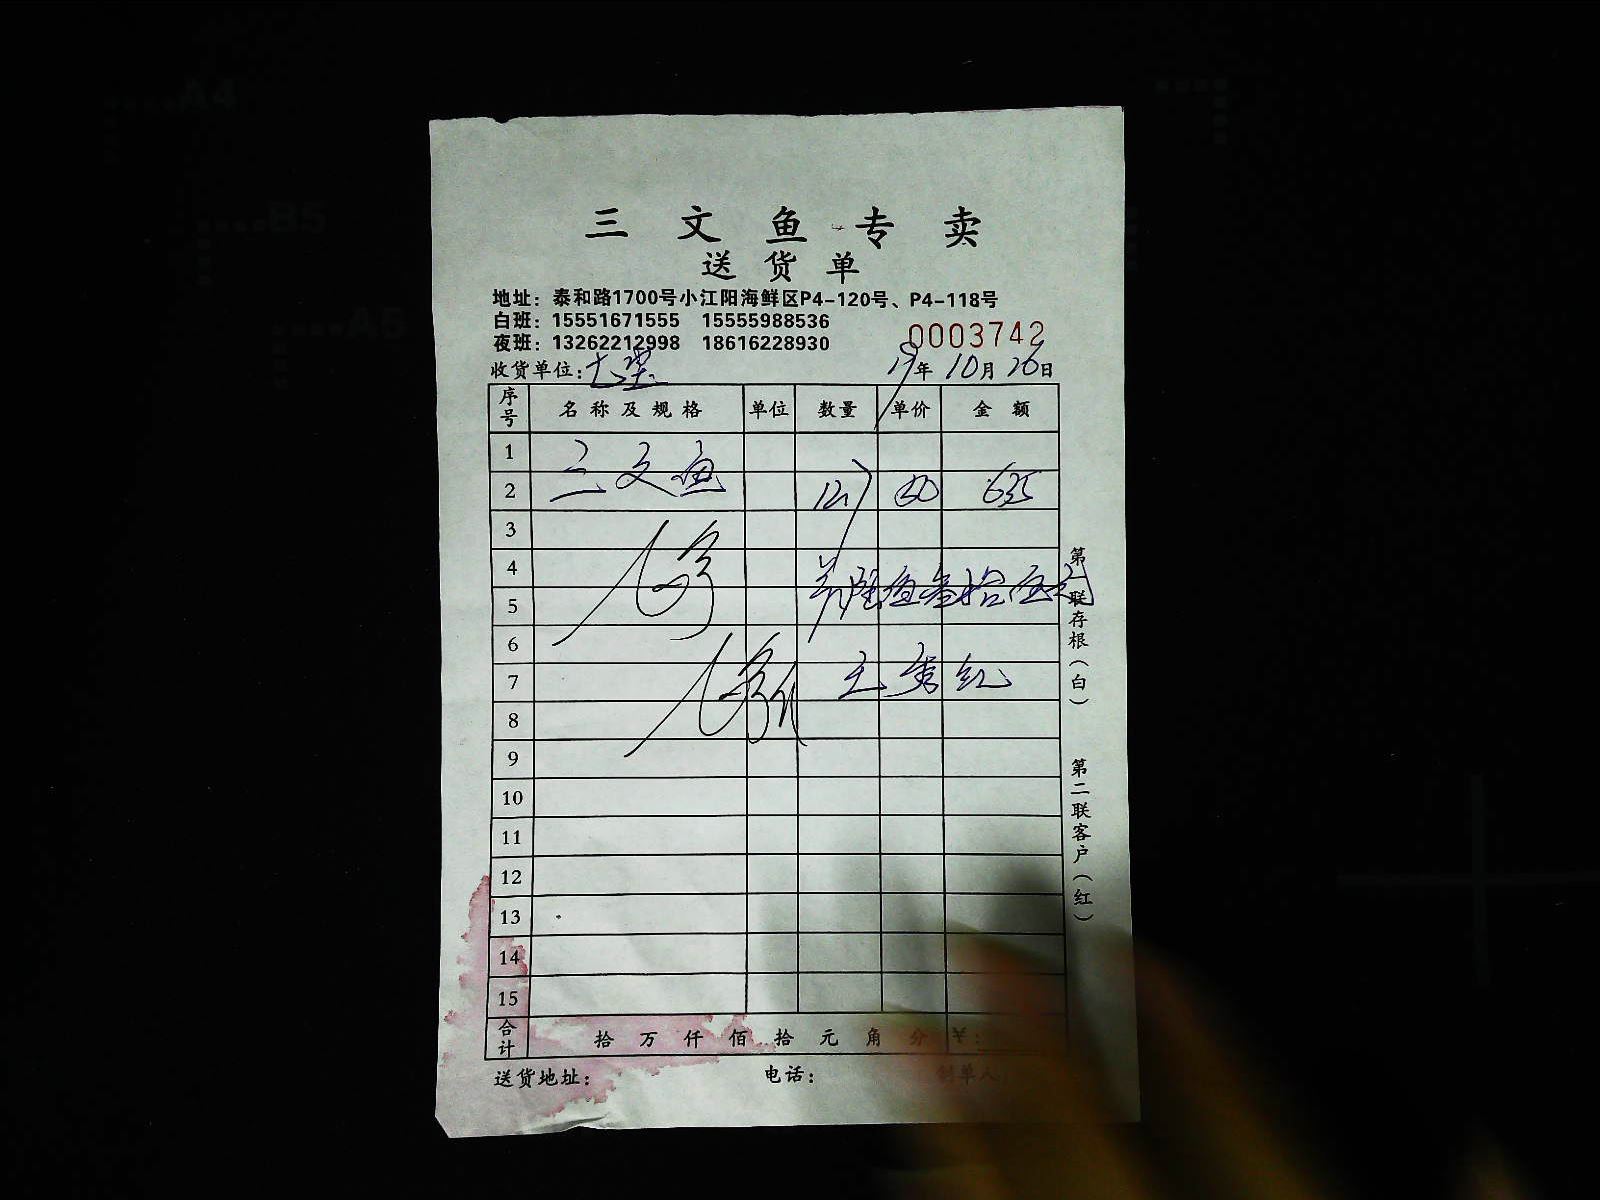 三文鱼专卖
送货单
地址：泰和路1700号小江阳海鲜区P4-120号、P4-118号
白班：15551671555 15555988536
夜班：13262212998 18616228930
0003742
收货单位： 19年10月26日
序号 名称及规格 单位 数量 单价 金额
1
2 三文鱼 127 50 635
3
4
5 陆佰叁拾伍元
6
7 王秀红
8
9
10
11
12
13
14
15
合计 拾万仟佰拾元角分 ¥：
送货地址： 电话： 制单人
第一联存根（白）
第二联客户（红）
A4
B5
A5